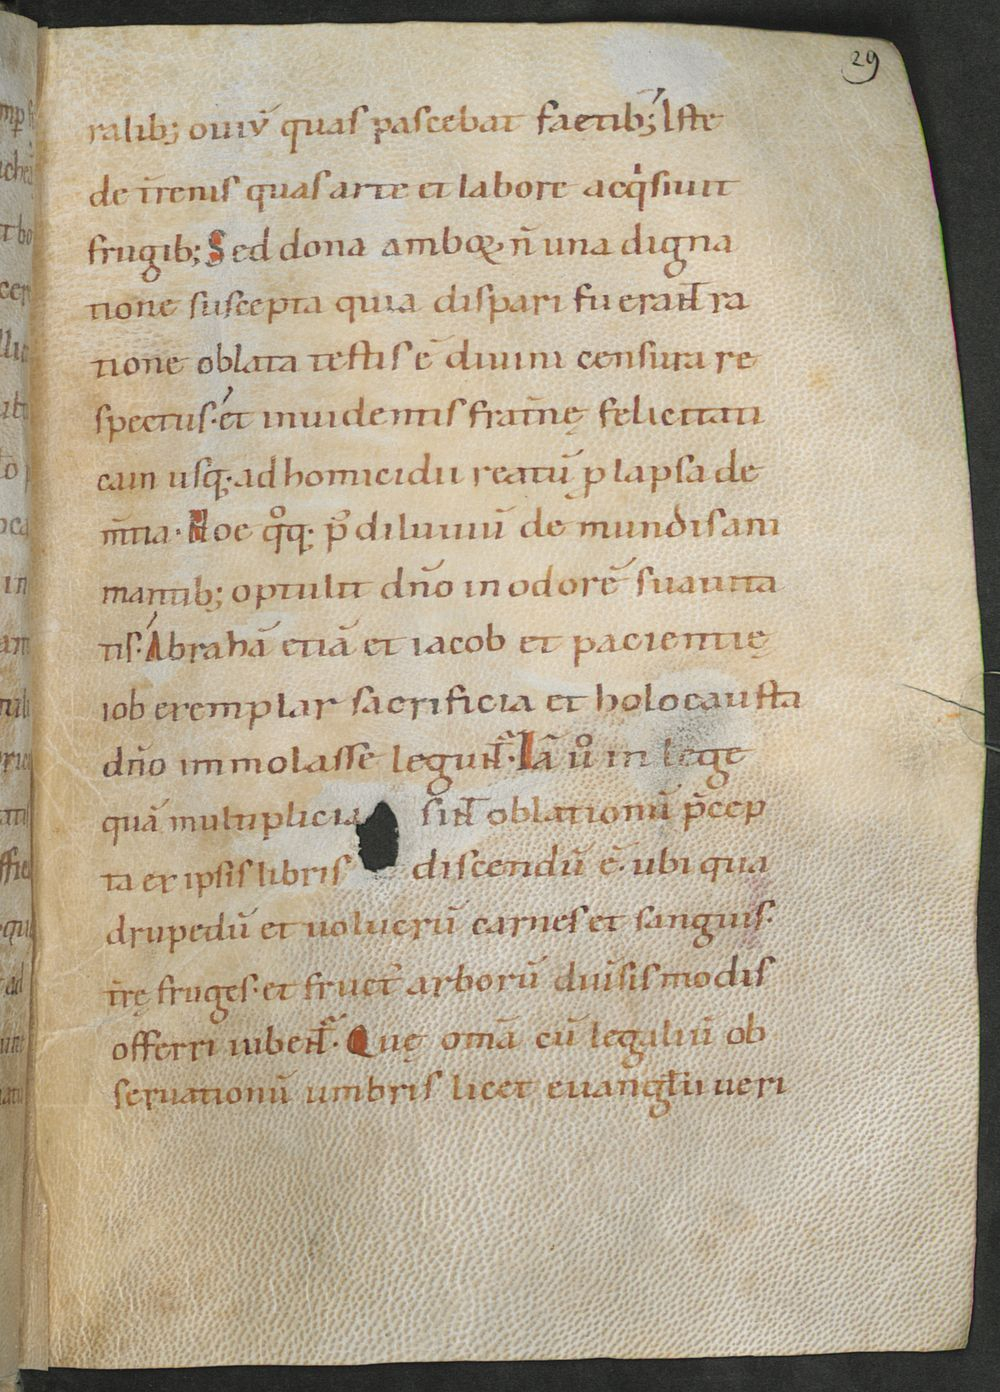 29
ralib; ouiv̄ quas pascebat faetib; Iste
de t̄renis quas arte et labore acq̇siuit
frugib; Sed dona amboꝝ n̄ una digna
tione suscepta quia dispari fuerant̄ ra
tione oblata testis ē diuini censura re
spectus· et inuidentis frat̄nę felicitati
cain usq· ad homicidii reatū ꝓlapsa de
m̄tia· Noe qͦq· pͦ diluuiū de mundis ani
mantib; optulit dn̄o in odorē suauita
tis· Abrahā etiā et iacob et pacientię
iob exemplar sacrificia et holocausta
dn̄o immolasse legunt᷑· Iā uͦ in lege
quā multiplicia sint̄ oblationū p̄cep
ta ex ipsis libris discendū ē· ubi qua
drupedū et uolucrū carnes et sanguis·
t̄rę fruges· et fruct᷑ arborū diuīsis modis
offerri iubent᷑· Quę om̄a cū legaliū ob
seruationū umbris licet euanglii ueri